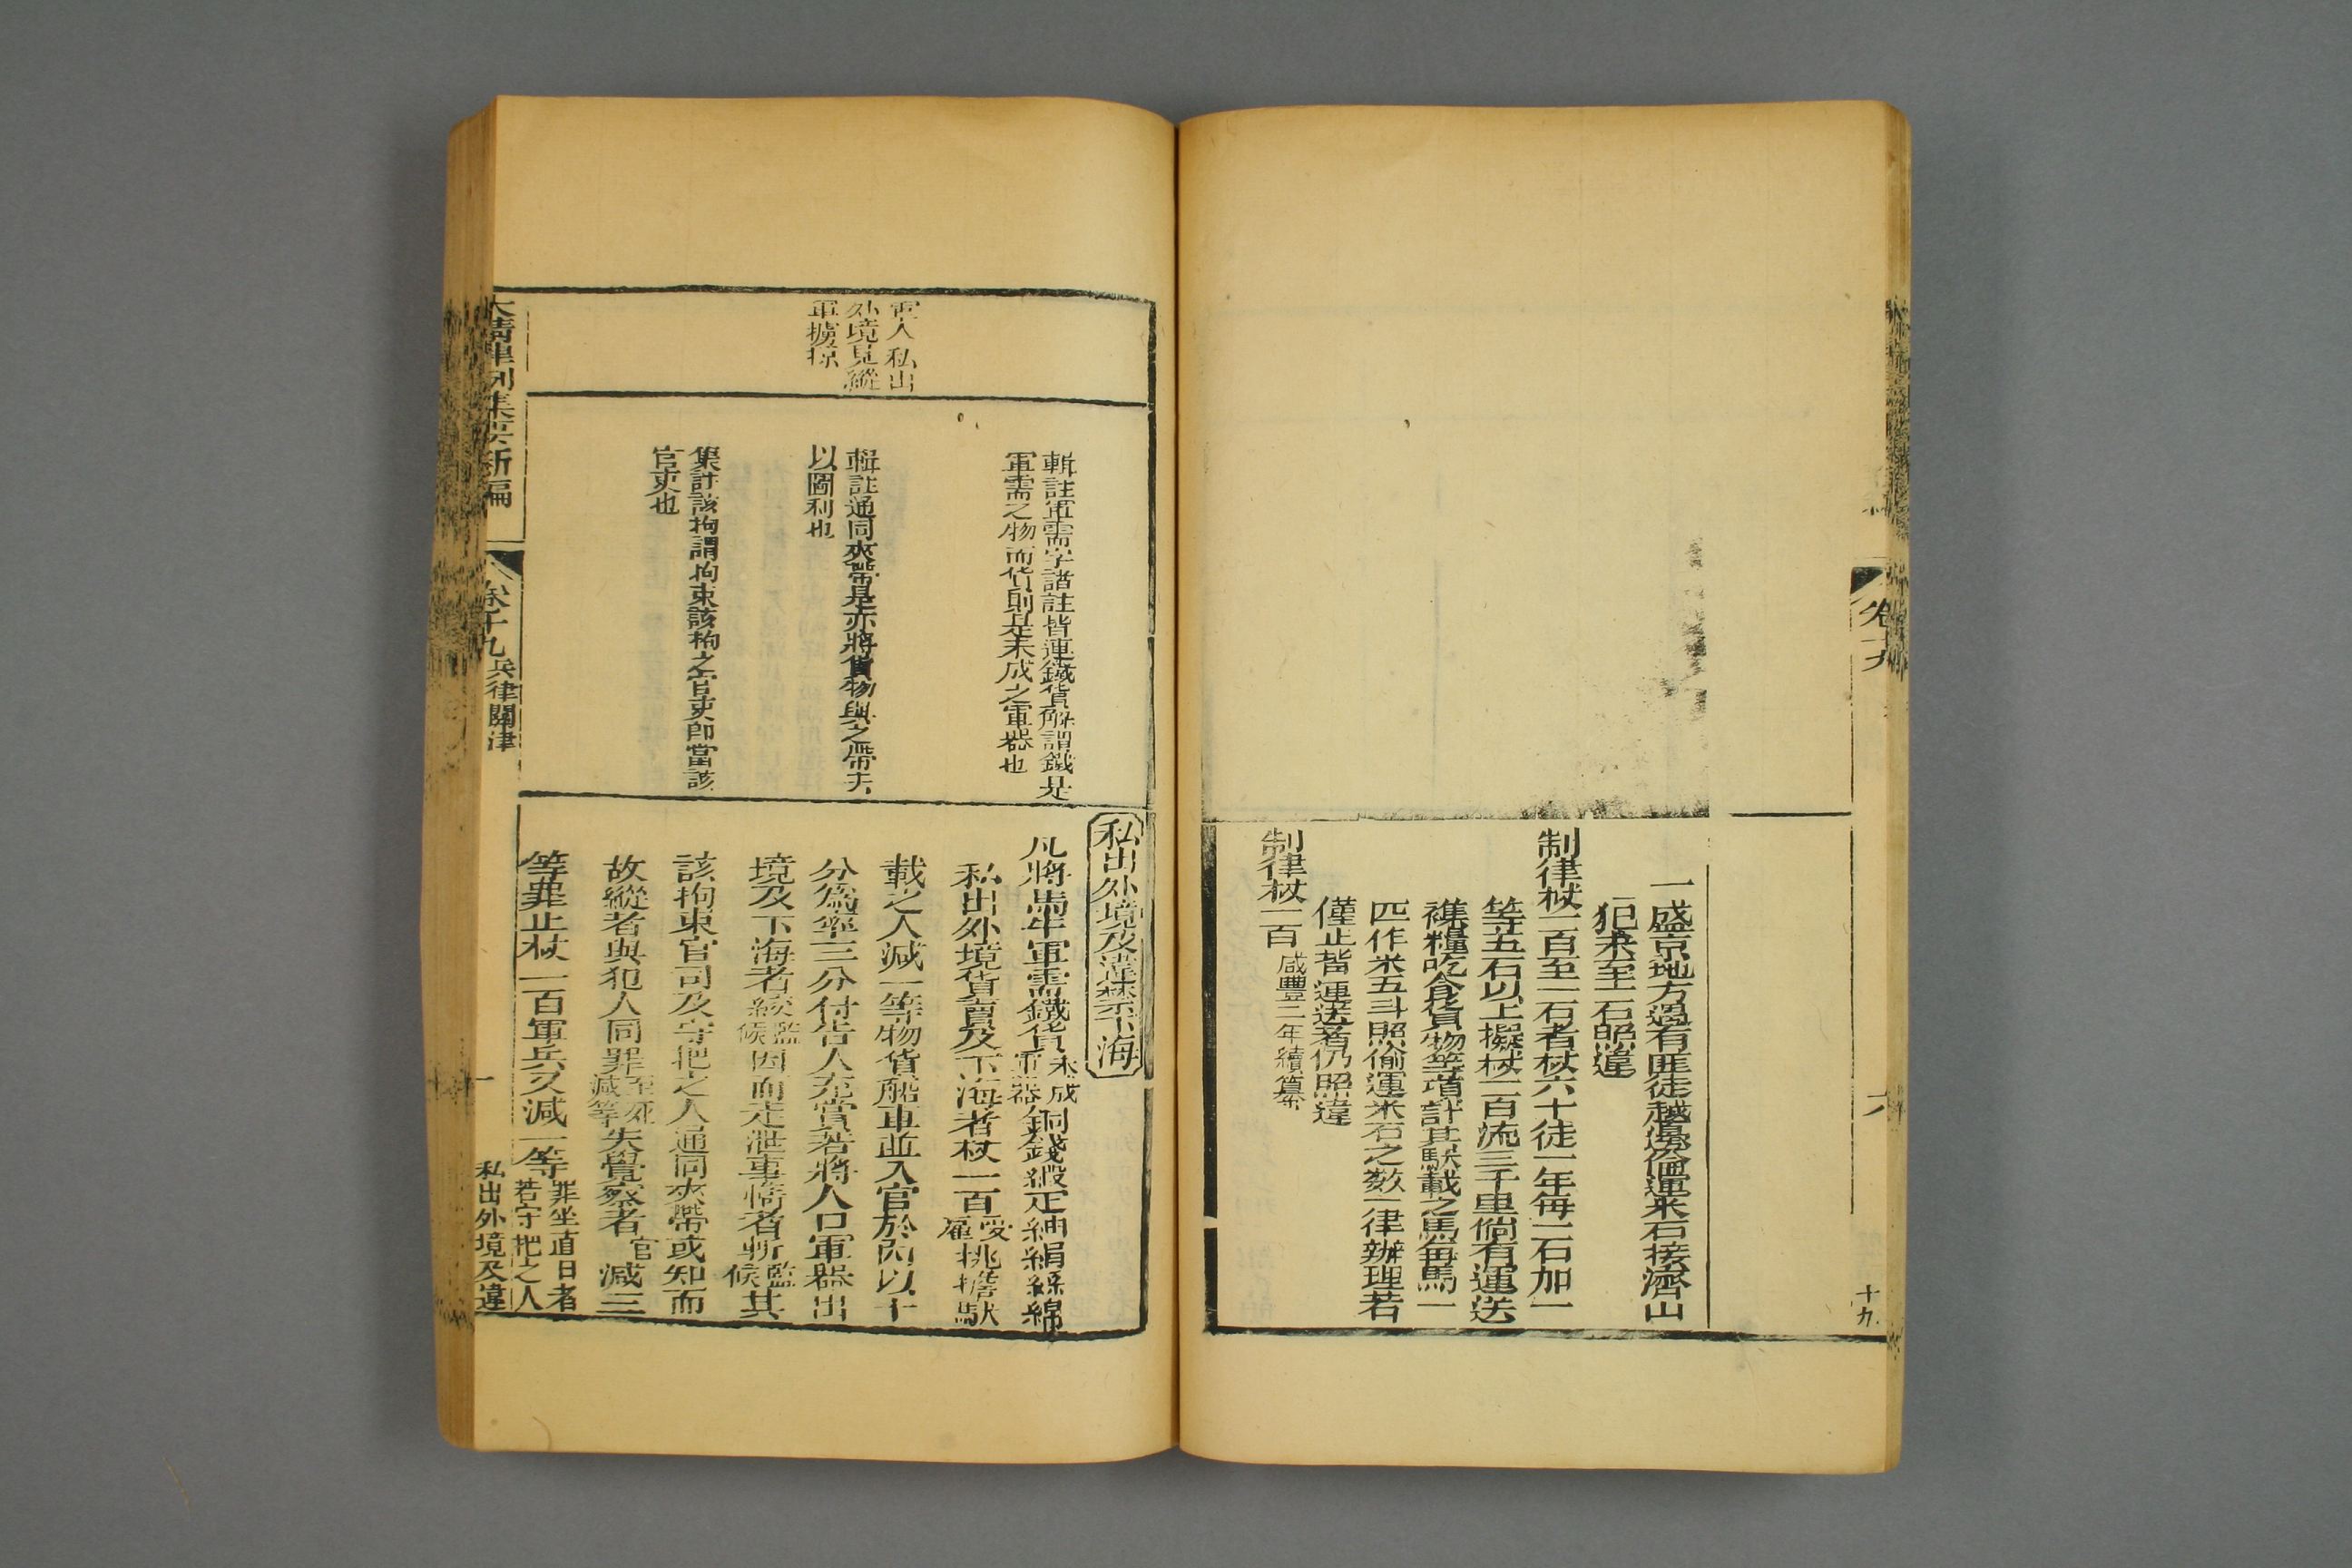 一盛京地方遇有匪徒越邊偷運米石接濟山
犯未至一石照違
制律杖一百至一石者杖六十徒一年每二石加一
等五石以上擬杖一百流三千里倘有運送
襍糧吃食貨物等項計其馱載之馬每馬一
匹作米五斗照偷運米石之數一律辦理若
僅止揹運送者仍照違
制律杖一百咸豐二年續纂
卷十九
十九
軍人私出
外境見縱
軍擄掠
輯註軍需字諸註皆連鐵貨解謂鐵是
軍需之物而貨則是未成之軍器也
輯註通同夾帶是亦將貨物與之帶去
以圖利也
集註該拘謂拘束該拘之官吏即當該
官吏也
私出外境及違禁下海
凡將馬牛軍需鐵貨未成軍器銅錢緞疋紬絹絲綿
私出外境貨賣及下海者杖一百受雇挑擔馱
載之人減一等物貨船車並入官於內以十
分為率三分付告人充賞若將人口軍器出
境及下海者絞監候因而走泄事情者斬監候其
該拘束官司及守把之人通同夾帶或知而
故縱者與犯人同罪至死減等失覺察者官減三
等罪止杖一百軍兵又減一等罪坐直日者若守把之人
大清律例集要新編
卷十九
兵律關津
私出外境及違